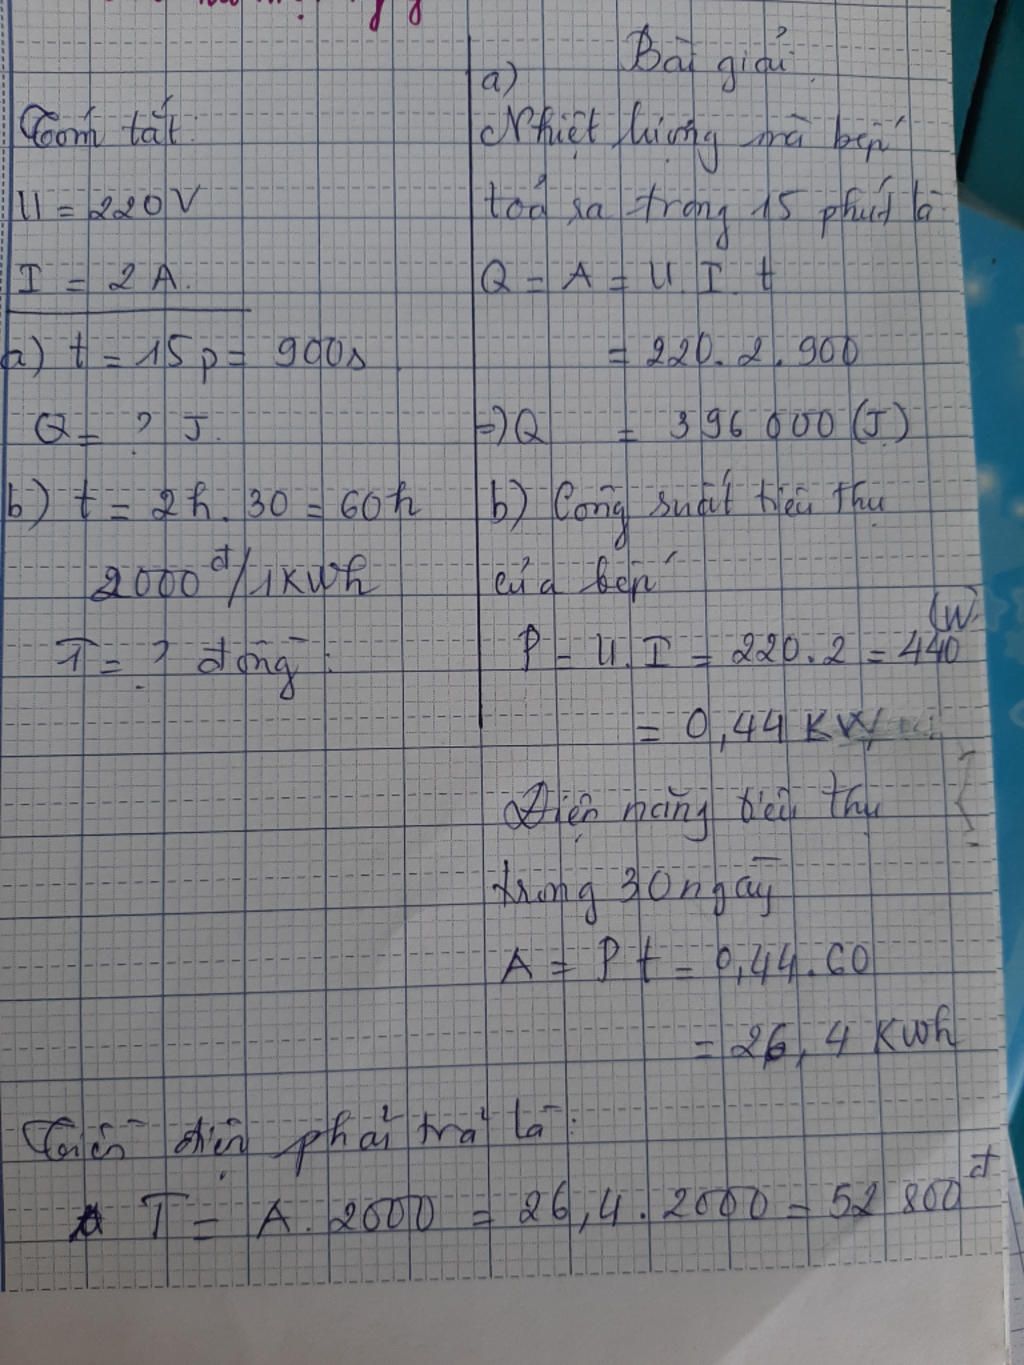 Tóm tắt:
U = 220V
I = 2 A.
a) t = 15p = 900s
Q = ? J.
b) t = 2h . 30 = 60h
2000đ/1KWh
T = ? đồng :
Bài giải
a)
Nhiệt lượng mà bếp
toả ra trong 15 phút là
Q = A = U. I. t
= 220. 2. 900
=> Q = 396 000 (J)
b) Công suất tiêu thụ
của bếp
P = U. I = 220. 2 = 440 (W)
= 0,44 KW
Điện năng tiêu thụ
trong 30 ngày
A = P t = 0,44. 60
= 26,4 KWh
Tiền điện phải trả là:
T = A. 2000 = 26,4. 2000 = 52 800đ